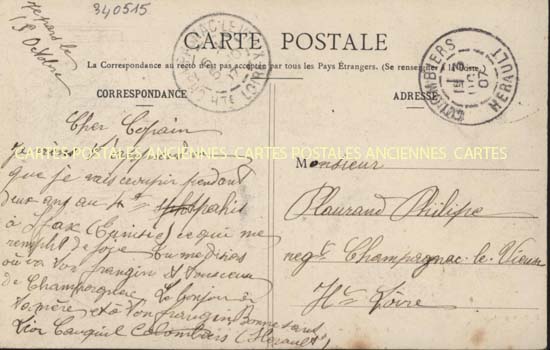 340515
je pars le
1er Octobre
CARTE POSTALE
La Correspondance au recto n'est pas acceptée par tous les Pays Étrangers. (Se renseigner
CORRESPONDANCE
ADRESSE
COLOMBIERS
HERAULT
HTE LOIRE
CARTES POSTALES ANCIENNES CARTES POSTALES ANCIENNES CARTES
Cher Copain
que je vais occuper pendant
deux ans au 4e spahis
à Sfax (Tunisie) ce qui me
remplit de joie Tu me diras
où va ton frangin et Jousseux
de Champagnac Le bonjour à
ta mère et à ton frangin Bonne santé
Colombiers (Hérault)
Monsieur
Plaurand Philipe
negt Champagnac-le-Vieux
Hte Loire